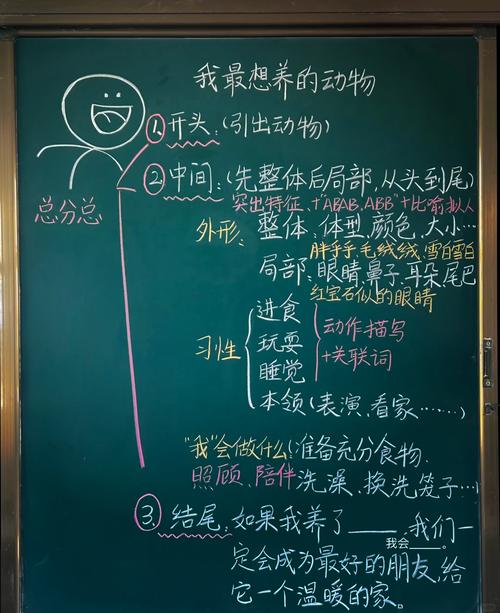 我最想养的动物
①开头:(引出动物)
总分总
②中间:(先整体后局部,从头到尾)
突出特征,+"ABAB,ABB"+比喻拟人
外形:整体:体型,颜色,大小…
胖乎乎,毛绒绒,雪白雪白
局部:眼睛鼻子、耳朵、尾巴
红宝石似的眼睛
习性
进食
玩耍
睡觉
动作描写
+关联词
本领(表演、看家……)
"我"会做什么(准备充分食物、
照顾、陪伴 洗澡、换洗笼子…)
③结尾:如果我养了____,我们一
我会____。
定会成为最好的朋友,给
它一个温暖的家。